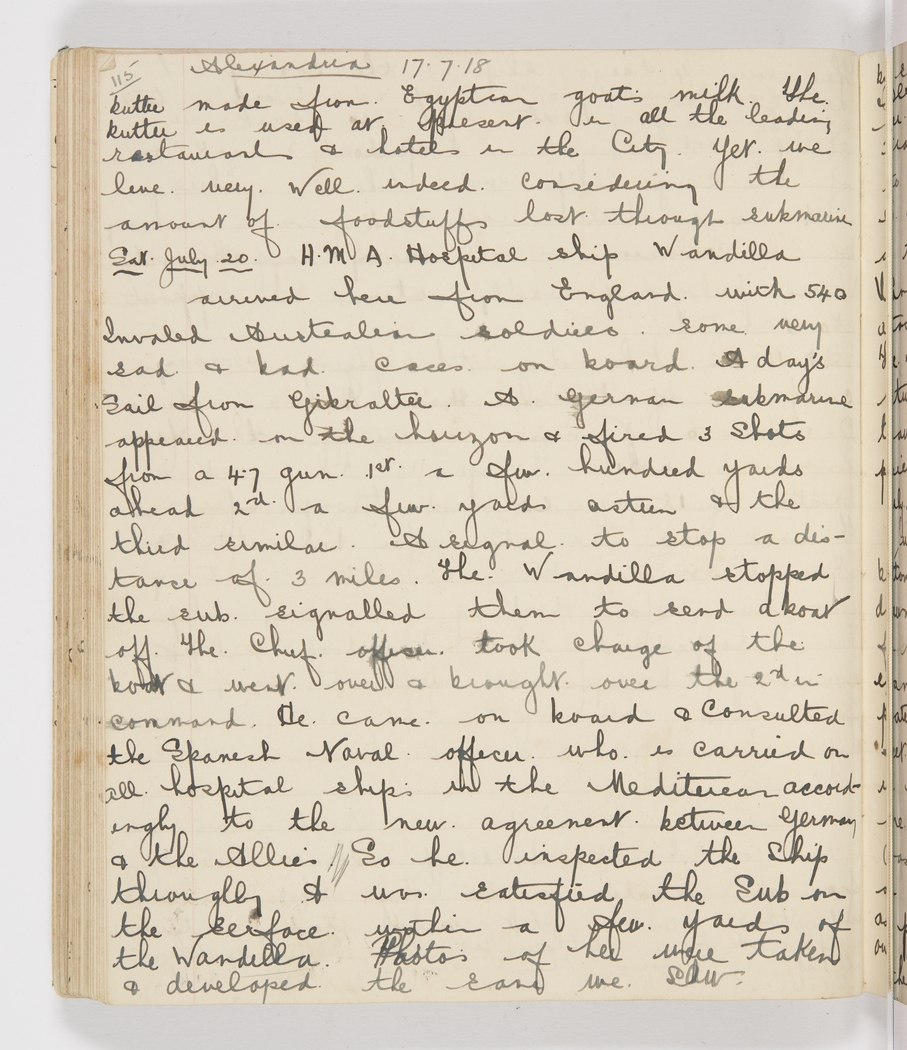 115
Alexandria 17.7.18
butter made from. Egyptian goats milk. The
butter is used at present. in all the leading
restaurants & hotels in the City. Yet. we
live. very. Well. indeed. considering the
amount of. foodstuffs lost through submarine
Sat. July. 20. H.M.A. Hospital ship Wandilla
arrived here from England. with 540
Invaled Australian soldiers. some very
sad. & bad. cases on board. A day's
Sail from Gibralter. A. German submarine
appeared. on the horizon & fired 3 Shots
from a 4.7 gun. 1st. a few. hundred yards
ahead 2nd. a few. yards astern & the
third similar. A signal. to stop a dis-
tance of. 3 miles. The. Wandilla stopped
the sub. signalled them to send a boat
off. The. Chief. officer. took charge of the
boat & went. over & brought. over the 2nd in
command. He. came. on board & Consulted
the Spanesh Naval. officer. who. is carried on
all. hospital ships in the Mediterean accord-
ingly to the new. agreement. between Germany
& the Allies // So he. inspected the Ship
throughly & was. satisfied the Sub on
the serface. within a few. yards of
the Wandella. Photos of her were taken
& developed. the same we. saw.